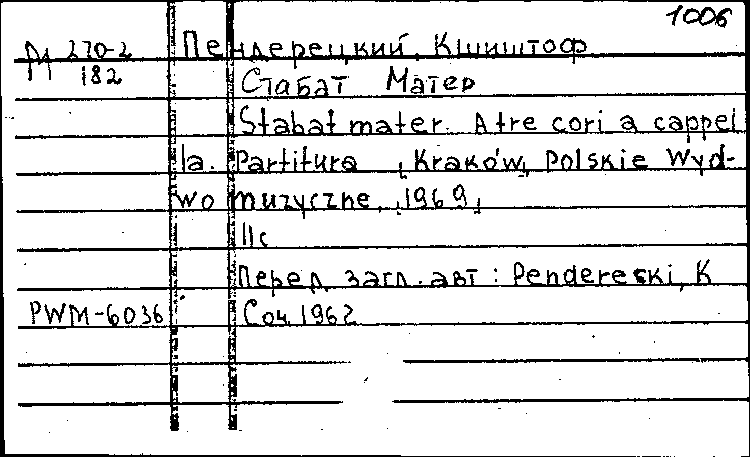 1006
М 270-2 Пендерецкий, Кшиштоф
182
Стабат Матер
Stabat mater. A tre cori a cappel
la. Partitura [Kraków], Polskie Wyd-
wo muzyczne, [1969]
11с
Перед загл. авт: Pendereski, K
PWM-6036 Соч. 1962